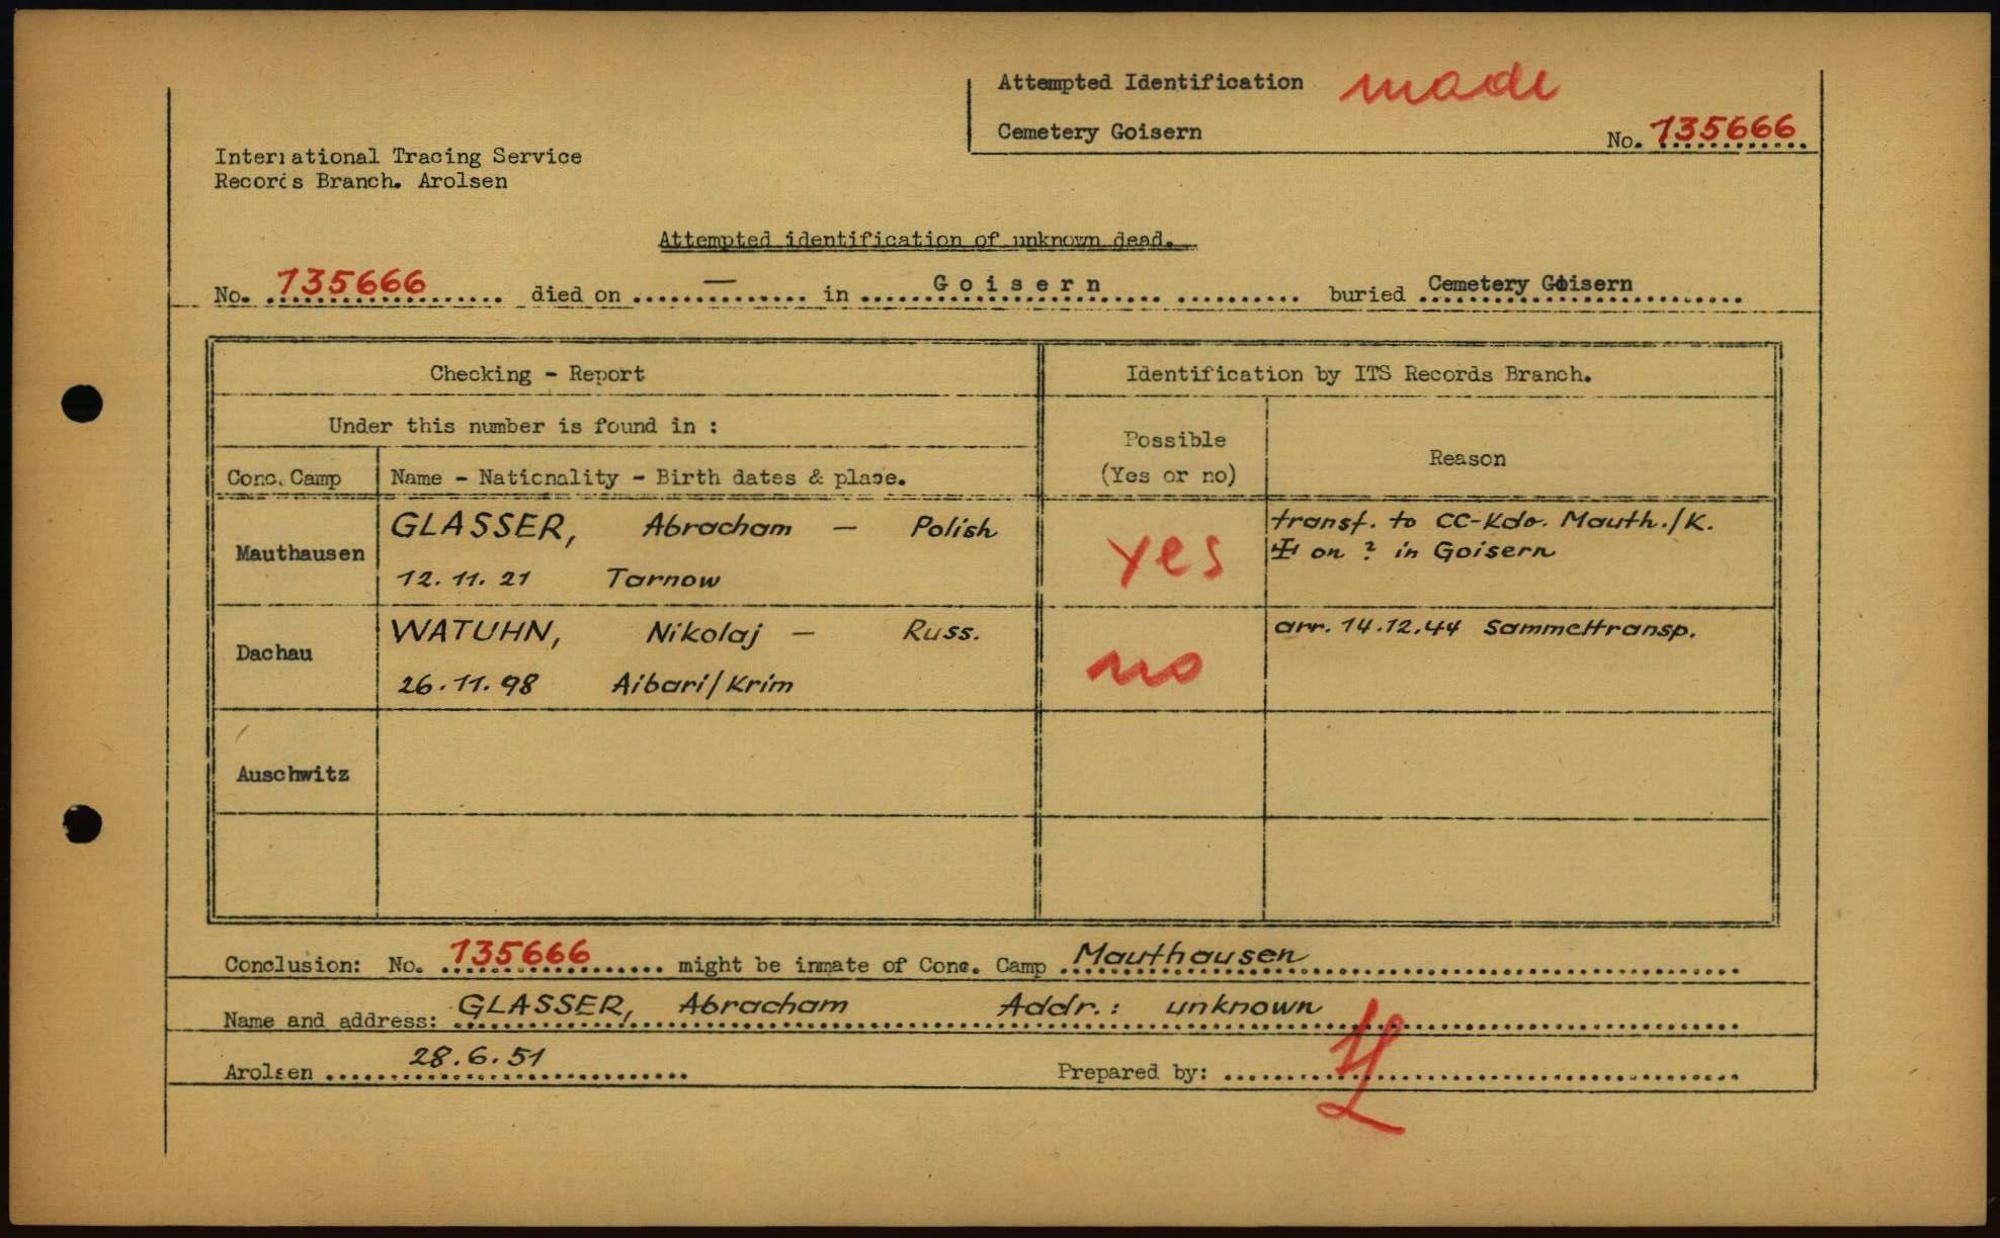 Attempted Identification made
Cemetery Goisern
No. 135666
International Tracing Service
Records Branch. Arolsen
Attempted identification of unknown dead.
No. 135666 died on — in Goisern buried Cemetery Goisern
Checking - Report
Identification by ITS Records Branch.
Under this number is found in :
Possible
(Yes or no)
Reason
Conc. Camp
Name - Nationality - Birth dates & place.
Mauthausen
GLASSER, Abracham — Polish
12. 11. 21 Tarnow
yes
transf. to CC-Kdo. Mauth./K.
on ? in Goisern
Dachau
WATUHN, Nikolaj — Russ.
26. 11. 98 Aibari/Krim
no
arr. 14.12.44 Sammeltransp.
Auschwitz
Conclusion: No. 135666 might be inmate of Conc. Camp Mauthausen
Name and address: GLASSER, Abracham Addr.: unknown
Arolsen 28.6.51
Prepared by: